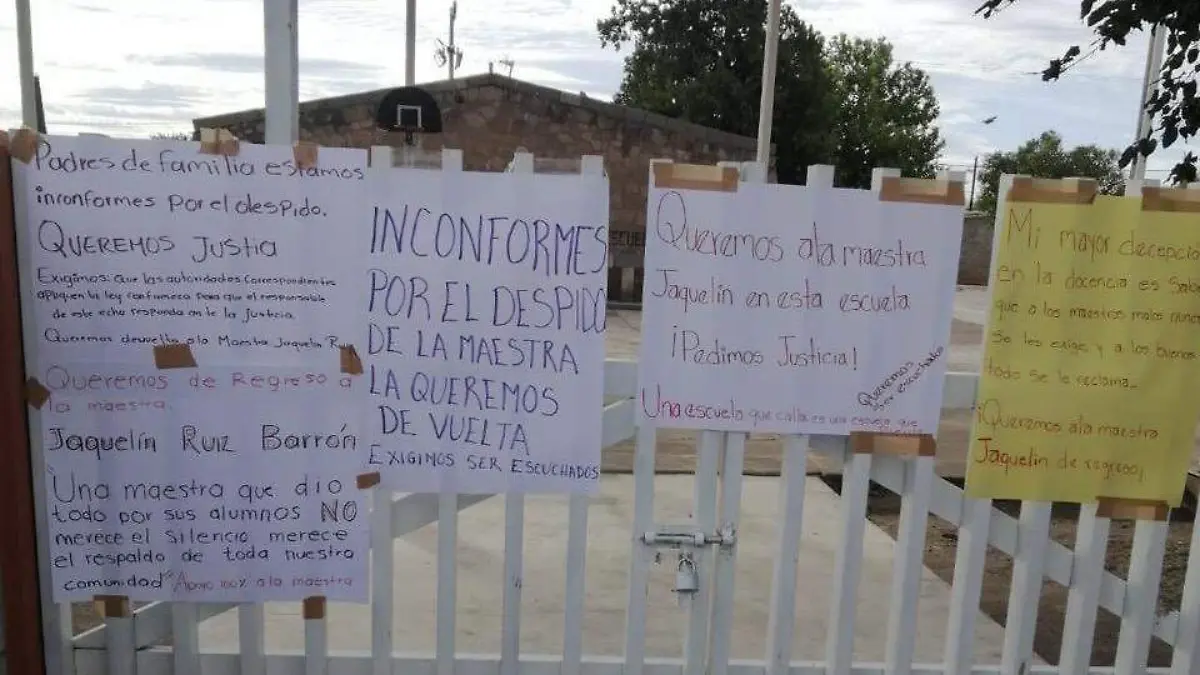 Padres de familia estamos
inconformes por el despido.
QUEREMOS JUSTIA
Exigimos: que las autoridades correspondientes
apliquen la ley
para que el responsable
de este echo responda
la justicia.
Queremos devuelta a la Maestra Jaquelin Ruiz
Queremos de Regreso a
la maestra.
Jaquelín Ruiz Barrón
"Una maestra que dio
todo por sus alumnos NO
merece el silencio merece
el respaldo de toda nuestra
comunidad" Apoyo 100% a la maestra
INCONFORMES
POR EL DESPIDO
DE LA MAESTRA
LA QUEREMOS
DE VUELTA
EXIGIMOS SER ESCUCHADOS
Queremos ala maestra
Jaquelin en esta escuela
¡Pedimos Justicia!
Queremos
ser escuchados
Una escuela que calla es una escuela que
Mi mayor decepcio
en la docencia es Sabe
que a los maestros malos nunca
se les exige y a los buenos
todo se le reclama..
¡Queremos ala maestra
Jaquelin de regreso¡